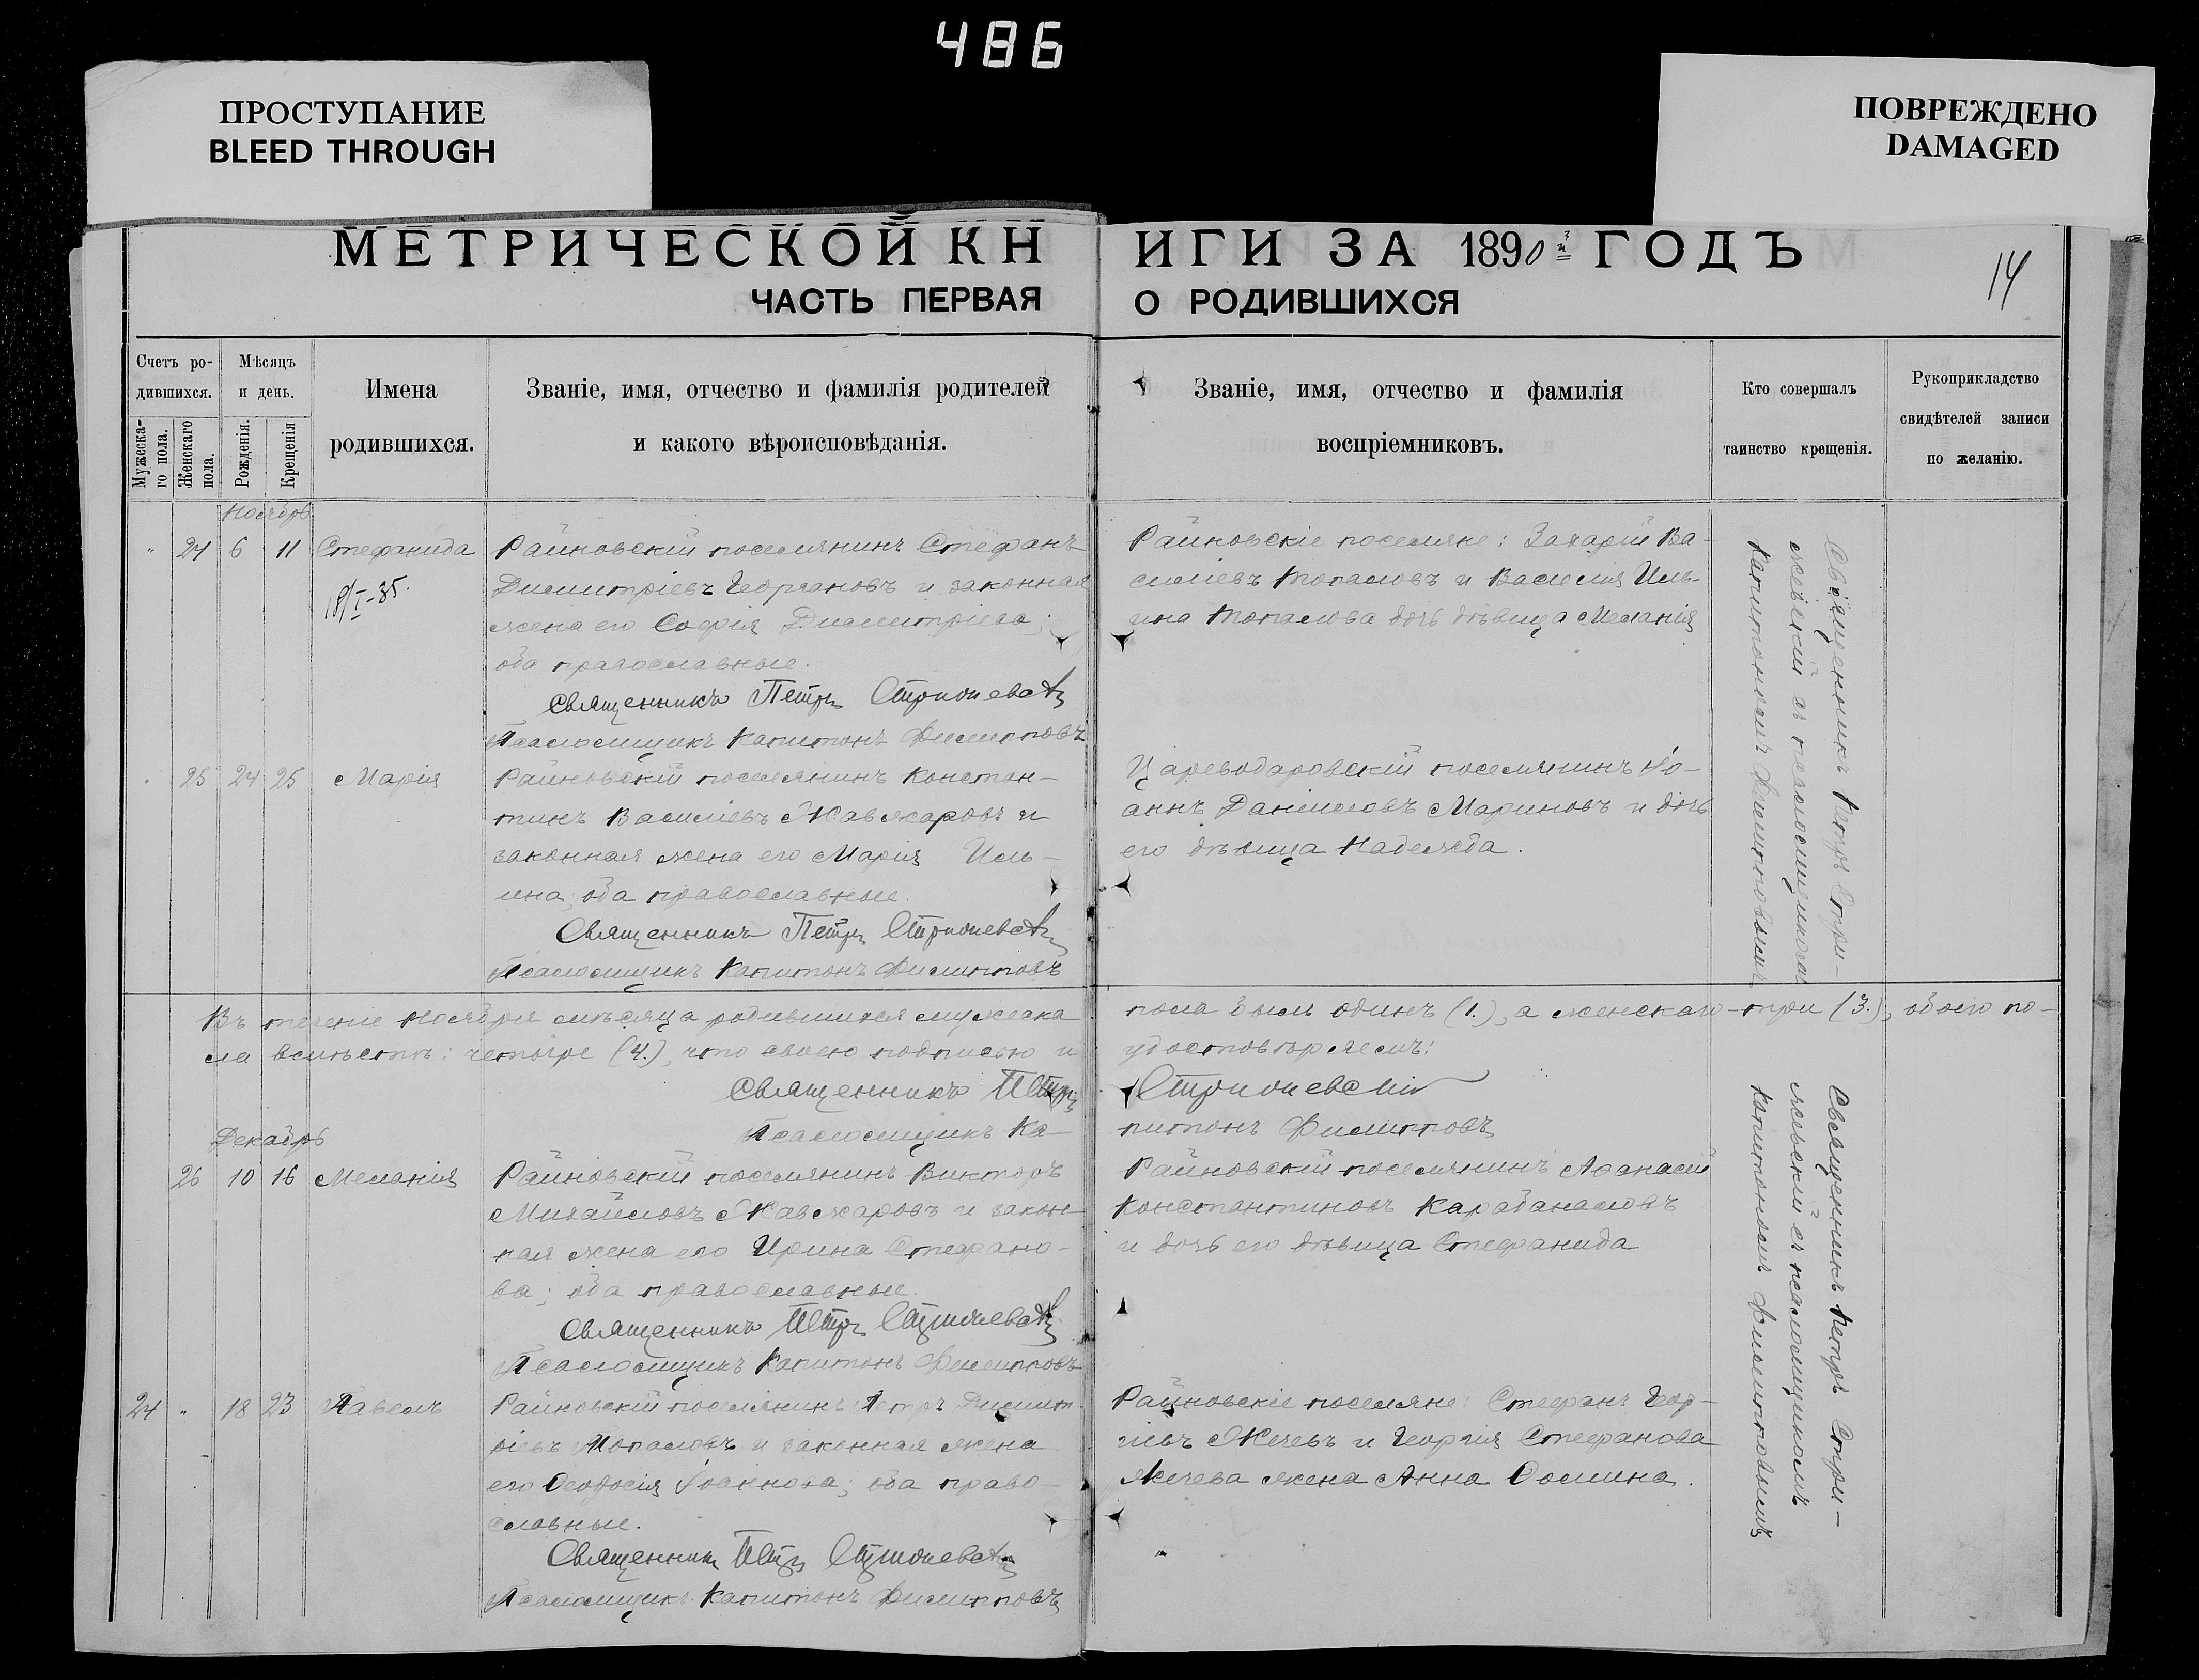 486
ПРОСТУПАНИЕ
BLEED THROUGH
ПОВРЕЖДЕНО
DAMAGED
МЕТРИЧЕСКОЙ КНИГИ ЗА 1890й ГОДЪ
14
ЧАСТЬ ПЕРВАЯ О РОДИВШИХСЯ
Счетъ ро-
дившихся.
Мужеска-
го пола.
Женскаго
пола.
Мѣсяцъ
и день.
Рожденія.
Крещенія
Имена
родившихся.
Званіе, имя, отчество и фамилія родителей
и какого вѣроисповѣданія.
Званіе, имя, отчество и фамилія
воспріемниковъ.
Кто совершалъ
таинство крещенія.
Рукоприкладство
свидѣтелей записи
по желанію.
Ноябрь
" 24 6 11 Стефанида
18/I-35.
Райновскій поселянинъ Стефанъ
Димитріевъ Георгановъ и законная
жена его Софія Димитріева;
оба православные.
Священникъ Петръ
Псаломщикъ Капитонъ Филипповъ
Райновскіе поселяне: Захарій Ва-
силіевъ Топаловъ и Василія Иль-
ина Топалова дочь дѣвица Меланія
Священникъ Петръ Стри-
съ псаломщикомъ
Капитономъ Филипповымъ
25 24 25 Марія
Райновскій поселянинъ Констан-
тинъ Василіевъ Жавжаровъ и
законная жена его Марія Иль-
ина; оба православные.
Священникъ Петръ
Псаломщикъ Капитонъ Филипповъ
Цареводаровскій поселянинъ Іо-
аннъ Даніиловъ Мариновъ и дочь
его дѣвица Надежда.
Въ теченіе Ноября мѣсяца родившихся мужеска пола былъ одинъ (1.), а женскаго - три (3.), обоего по-
ла вмѣстѣ: четыре (4.), что своею подписью и удостовѣряемъ:
Священникъ Петръ
Псаломщикъ Капитонъ Филипповъ
Декабрь
26 10 16 Меланія
Райновскій поселянинъ Викторъ
Михайловъ Жавжаровъ и закон-
ная жена его Ирина Стефано-
ва; оба православные.
Священникъ Петръ
Псаломщикъ Капитонъ Филипповъ
Райновскій поселянинъ Аѳанасій
Константиновъ Карабанасовъ
и дочь его дѣвица Стефанида
Священникъ Петръ Стри-
съ псаломщикомъ
Капитономъ Филипповымъ
24 " 18 23 Павелъ
Райновскій поселянинъ Петръ Димит-
ріевъ Топаловъ и законная жена
его Ѳеодосія Іоаннова; оба право-
славные.
Священникъ Петръ
Псаломщикъ Капитонъ Филипповъ
Райновскіе поселяне: Стефанъ Геор-
гіевъ Жечевъ и Георгія Стефанова
Жечева жена Анна Ѳомина.